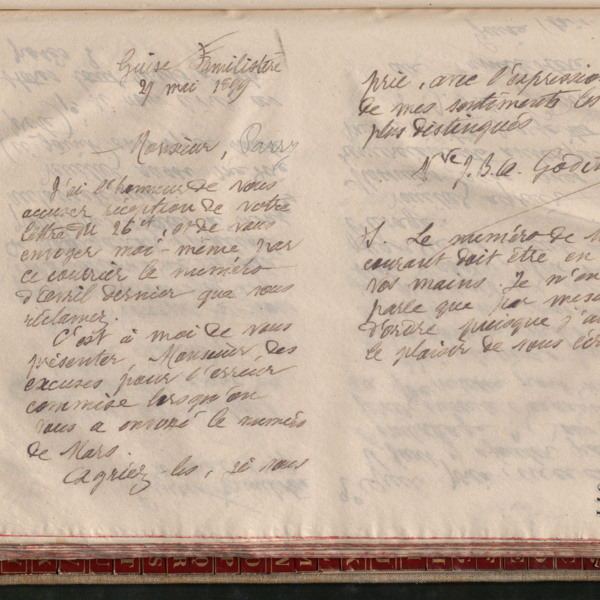 Guise Familistère
29 mai 1889
Monsieur,
J'ai l'honneur de vous
accuser réception de votre
lettre du 26 ct, et de vous
envoyer moi-même par
ce courrier le numéro
d'avril dernier que vous
réclamez.
C'est à moi de vous
présenter, Monsieur, des
excuses pour l'erreur
commise lorsqu'on
vous a envoyé le numéro
de Mars.
Agréez-les, je vous
prie, avec l'expression
de mes sentiments les
plus distingués
Vve J.B.A. Godin
Le numéro de
courant doit être en
vos mains. Je n'en
parle que par mesure
d'ordre puisque j'ai
le plaisir de vous